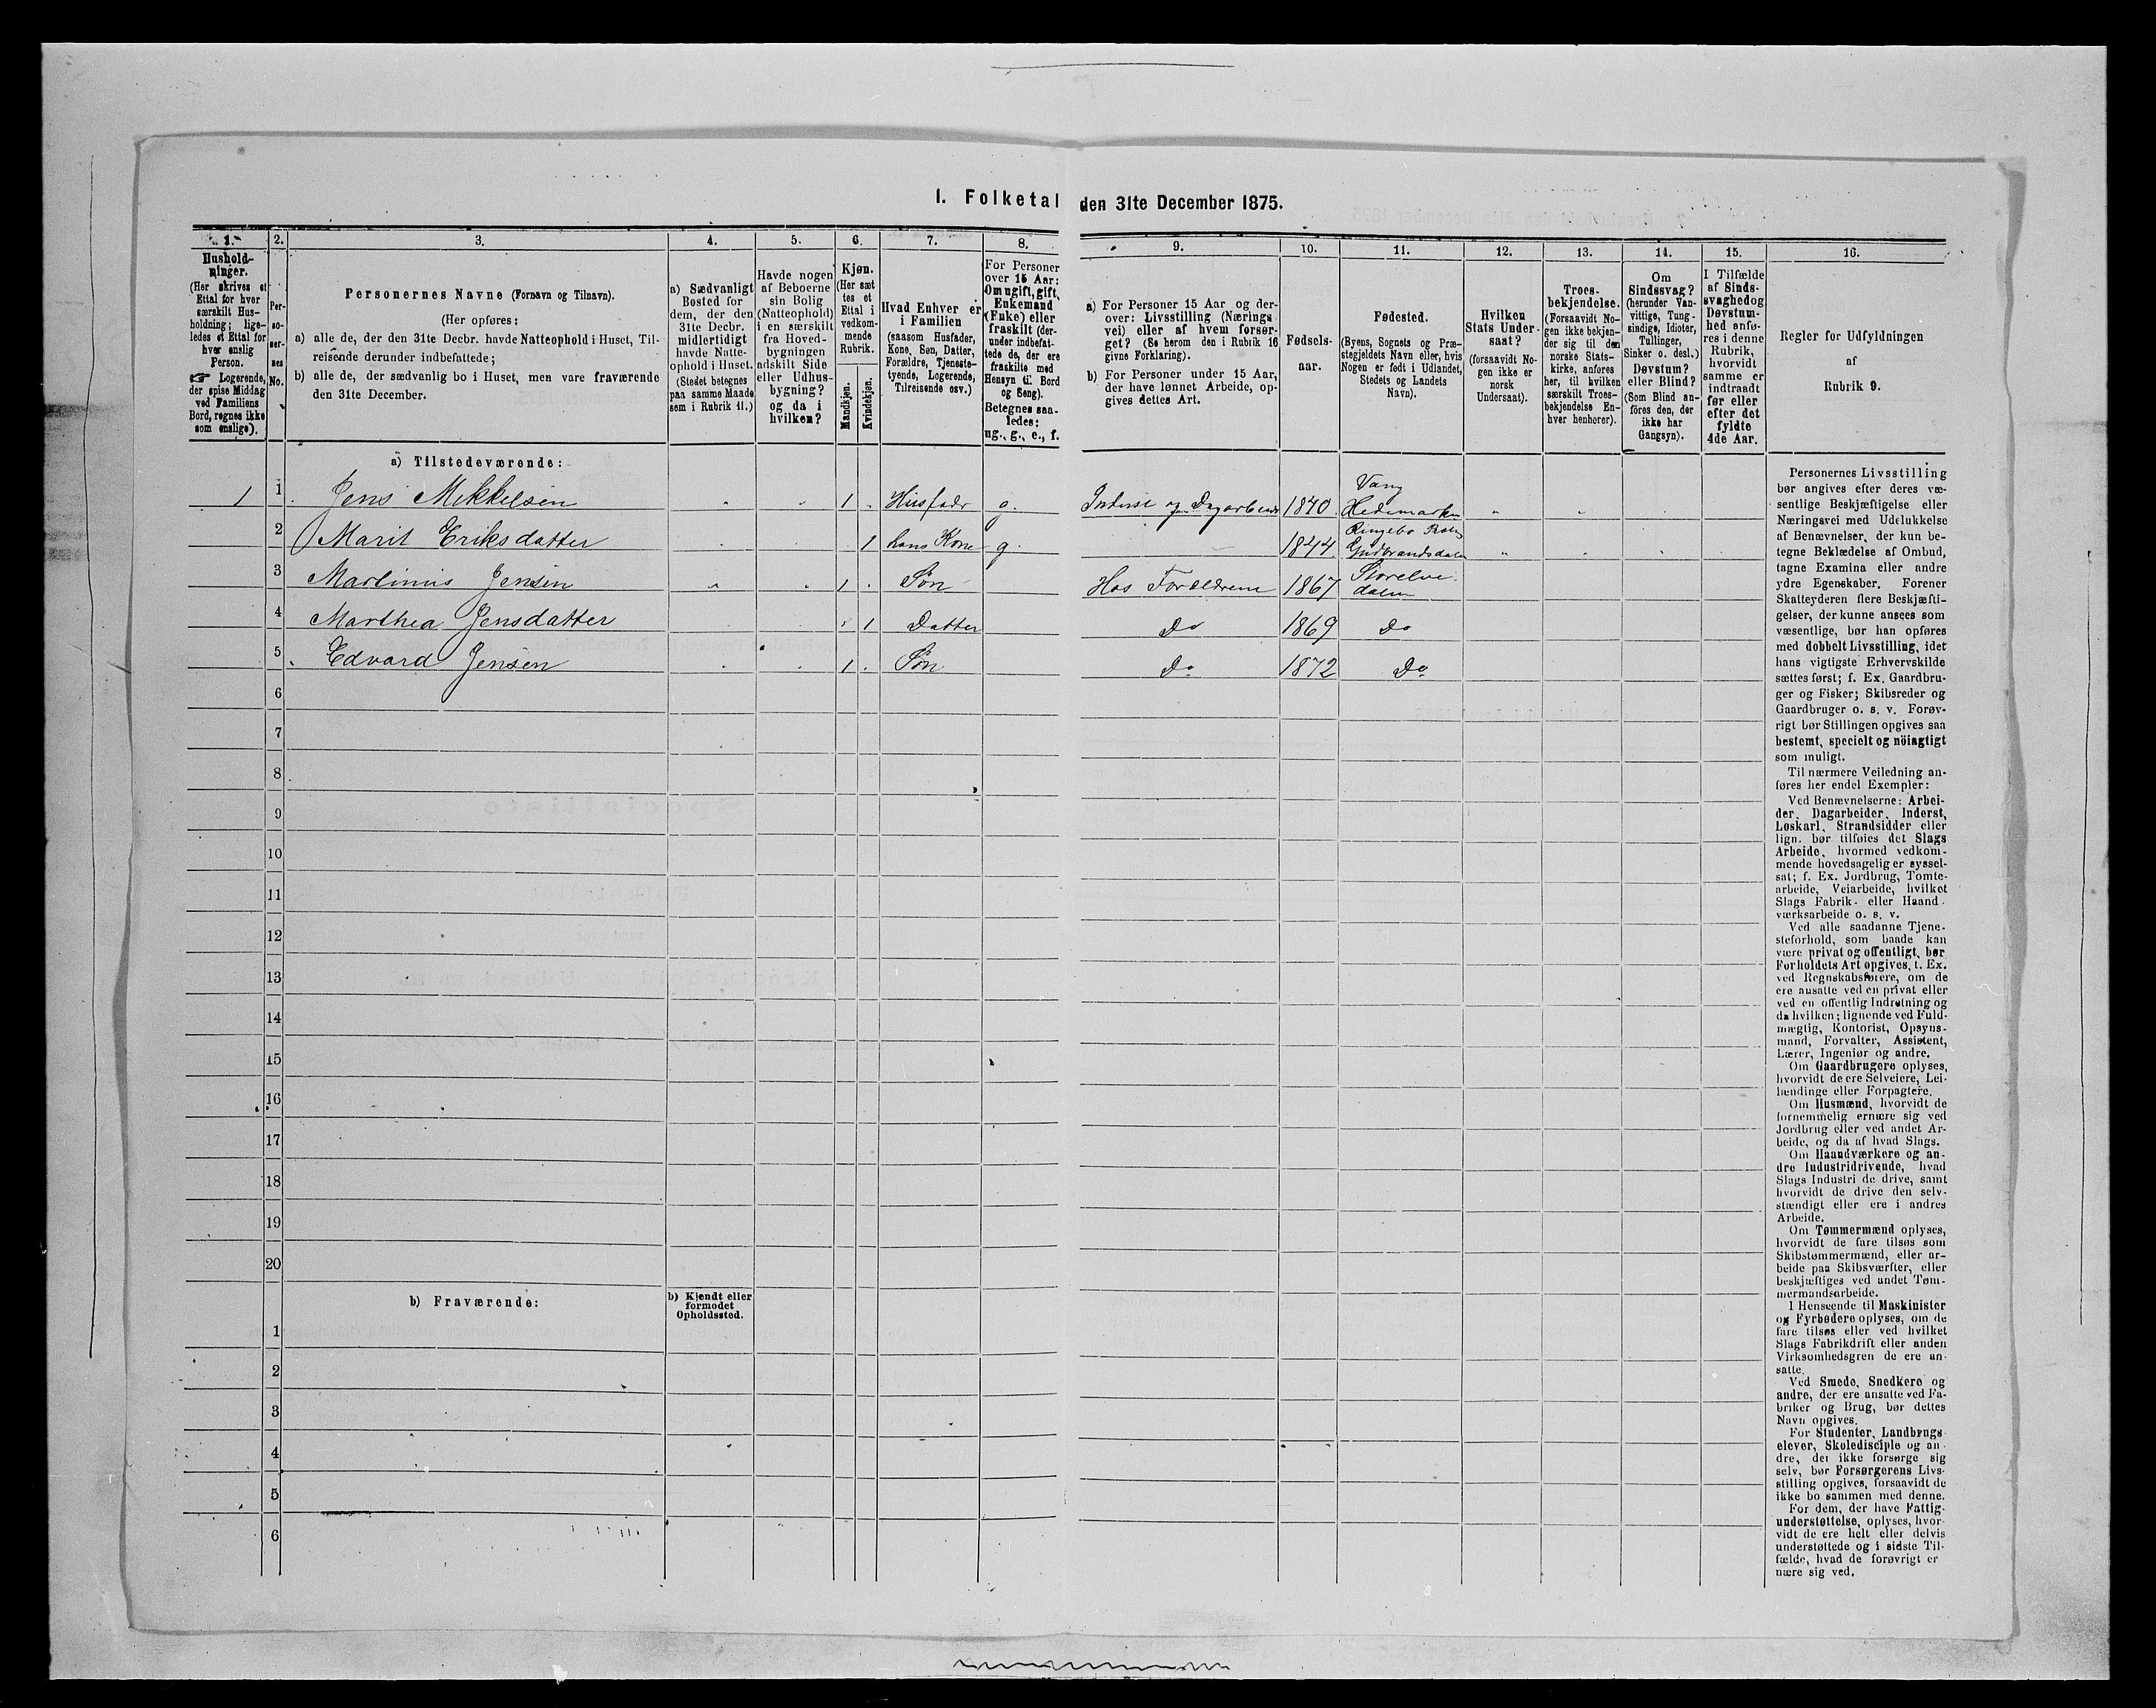 1. Folketal den 31te December 1875.
1. 2. 3. 4. 5. 6. 7. 8. 9. 10. 11. 12. 13. 14. 15. 16.
Hushold-
ninger.
(Her skrives et
Ettal for hver
særskilt Hus-
holdning; lige-
ledes et Ettal for
hver enslig
Person.
☞ Logerende,
der spise Middag
ved Familiens
Bord, regnes ikke
som enslige).
Per-
so-
ner-
nes
No.
Personernes Navne (Fornavn og Tilnavn).
(Her opføres:
a) alle de, der den 31te Decbr. havde Natteophold i Huset, Til-
reisende derunder indbefattede;
b) alle de, der sædvanlig bo i Huset, men vare fraværende
den 31te December.
a) Sædvanligt
Bosted for
dem, der den
31te Decbr.
midlertidigt
havde Natte-
ophold i Huset.
(Stedet betegnes
paa samme Maade
som i Rubrik 11.)
Havde nogen
af Beboerne
sin Bolig
(Natteophold)
i en særskilt
fra Hoved-
bygningen
adskilt Side
eller Udhus-
bygning?
og da i
hvilken?
Kjøn.
(Her sæt
tes et
Ettal i
vedkom-
mende
Rubrik.
Mandkjøn.
Kvindekjøn.
Hvad Enhver er
i Familien
(saasom Husfader,
Kone, Søn, Datter,
Forældre, Tjeneste-
tyende, Logerende,
Tilreisende osv.)
For Personer
over 15 Aar:
Om ugift, gift,
Enkemand
(Enke) eller
fraskilt (der-
under indbefat-
tede de, der ere
fraskilte med
Hensyn til Bord
og Seng).
Betegnes saa-
ledes:
ug., g., e., f.
a) For Personer 15 Aar og der-
over: Livsstilling (Nærings
vei) eller af hvem forsør-
get? (Se herom den i Rubrik 16
givne Forklaring).
b) For Personer under 15 Aar,
der have lønnet Arbeide, op-
gives dettes Art.
Fødsels-
aar.
Fødested.
(Byens, Sognets og Præ-
stegjeldets Navn eller, hvis
Nogen er født i Udlandet,
Stedets og Landets
Navn).
Hvilken
Stats Under-
saat?
(forsaavidt No-
gen ikke er
norsk
Undersaat).
Troes-
bekjendelse.
(Forsaavidt No-
gen ikke bekjen-
der sig til den
norske Stats-
kirke, anføres
her, til hvilken
særskilt Troes-
bekjendelse En-
hver henhører).
Om
Sindssvag?
(herunder Van-
vittige, Tung-
sindige, Idioter,
Tullinger,
Sinker o. desl.)
Døvstum?
eller Blind?
(Som Blind an-
føres den, der
ikke har
Gangsyn).
I Tilfælde
af Sinds-
svaghed og
Døvstum-
hed anfø-
res i denne
Rubrik,
hvorvidt
samme er
indtraadt
før eller
efter det
fyldte
4de Aar.
Regler for Udfyldningen
af
Rubrik 9.
a) Tilstedeværende:
1 1 Jens Mikkelsen 1 Husfadr g. Inderst og Dagarbeide 1840 Vang
Hedemarken
2 Marit Eriksdatter 1 hans Kone g. 1844 Ringebo
Gudbrandsdalen
3 Martinus Jensen 1 Søn Hos Forældrene 1867 Storelve
dalen
4 Marthea Jensdatter 1 Datter Do 1869 Do
5 Edvard Jensen 1 Søn Do 1872 Do
6
7
8
9
10
11
12
13
14
15
16
17
18
19
20
b) Fraværende:
b) Kjendt eller
formodet
Opholdssted.
1
2
3
4
5
6
Personernes Livsstilling
bør angives efter deres væ-
sentlige Beskjæftigelse eller
Næringsvei med Udelukkelse
af Benævnelser, der kun be-
tegne Beklædelse af Ombud,
tagne Examina eller andre
ydre Egenskaber. Forener
Skatteyderen flere Beskjæfti-
gelser, der kunne ansees som
væsentlige, bør han opføres
med dobbelt Livsstilling, idet
hans vigtigste Erhvervskilde
sættes først; f. Ex. Gaardbru-
ger og Fisker; Skibsreder og
Gaardbruger o. s. v. Forøv-
rigt bør Stillingen opgives saa
bestemt, specielt og nöiagtigt
som muligt.
Til nærmere Veiledning an-
føres her endel Exempler:
Ved Benævnelserne: Arbei-
der, Dagarbeider, Inderst,
Løskarl, Strandsidder eller
lign. bør tilføies det Slags
Arbeide, hvormed vedkom-
mende hovedsagelig er syssel-
sat; f. Ex. Jordbrug, Tomte-
arbeide, Veiarbeide, hvilket
Slags Fabrik- eller Haand-
værksarbeide o. s. v.
Ved alle saadanne Tjene-
steforhold, som baade kan
være privat og offentligt, bør
Forholdets Art opgives, t. Ex.
ved Regnskabsførere, om de
ere ansatte ved en privat eller
ved en offentlig Indretning og
da hvilken; lignende ved Fuld-
mægtig, Kontorist, Opsyns-
mand, Forvalter, Assistent,
Lærer, Ingeniør og andre.
Om Gaardbrugere oplyses,
hvorvidt de ere Selveiere, Lei-
lændinge eller Forpagtere.
Om Husmænd, hvorvidt de
fornemmelig ernære sig ved
Jordbrug eller ved andet Ar-
beide, og da af hvad Slags.
Om Haandværkere og an-
dre Industridrivende, hvad
Slags Industri de drive, samt
hvorvidt de drive den selv-
stændigt eller ere i andres
Arbeide.
Om Tømmermænd oplyses,
hvorvidt de fare tilsøs som
Skibstømmermænd, eller ar-
beide paa Skibsværfter, eller
beskjæftiges ved andet Tøm-
mermandsarbeide.
I Henseende til Maskinister
og Fyrbødere oplyses, om de
fare tilsøs eller ved hvilket
Slags Fabrikdrift eller anden
Virksomhedsgren de ere an-
satte.
Ved Smede, Snedkere og
andre, der ere ansatte ved Fa-
briker og Brug, bør dettes
Navn opgives.
For Studenter, Landbrugs-
elever, Skoledisciple og an-
dre, der ikke forsørge sig
selv, bør Forsørgerens Livs-
stilling opgives, forsaavidt de
ikke bo sammen med denne.
For dem, der have Fattig-
understøttelse, oplyses, hvor-
vidt de ere helt eller delvis
understøttede og i sidste Til-
fælde, hvad de forøvrigt er
nære sig ved.